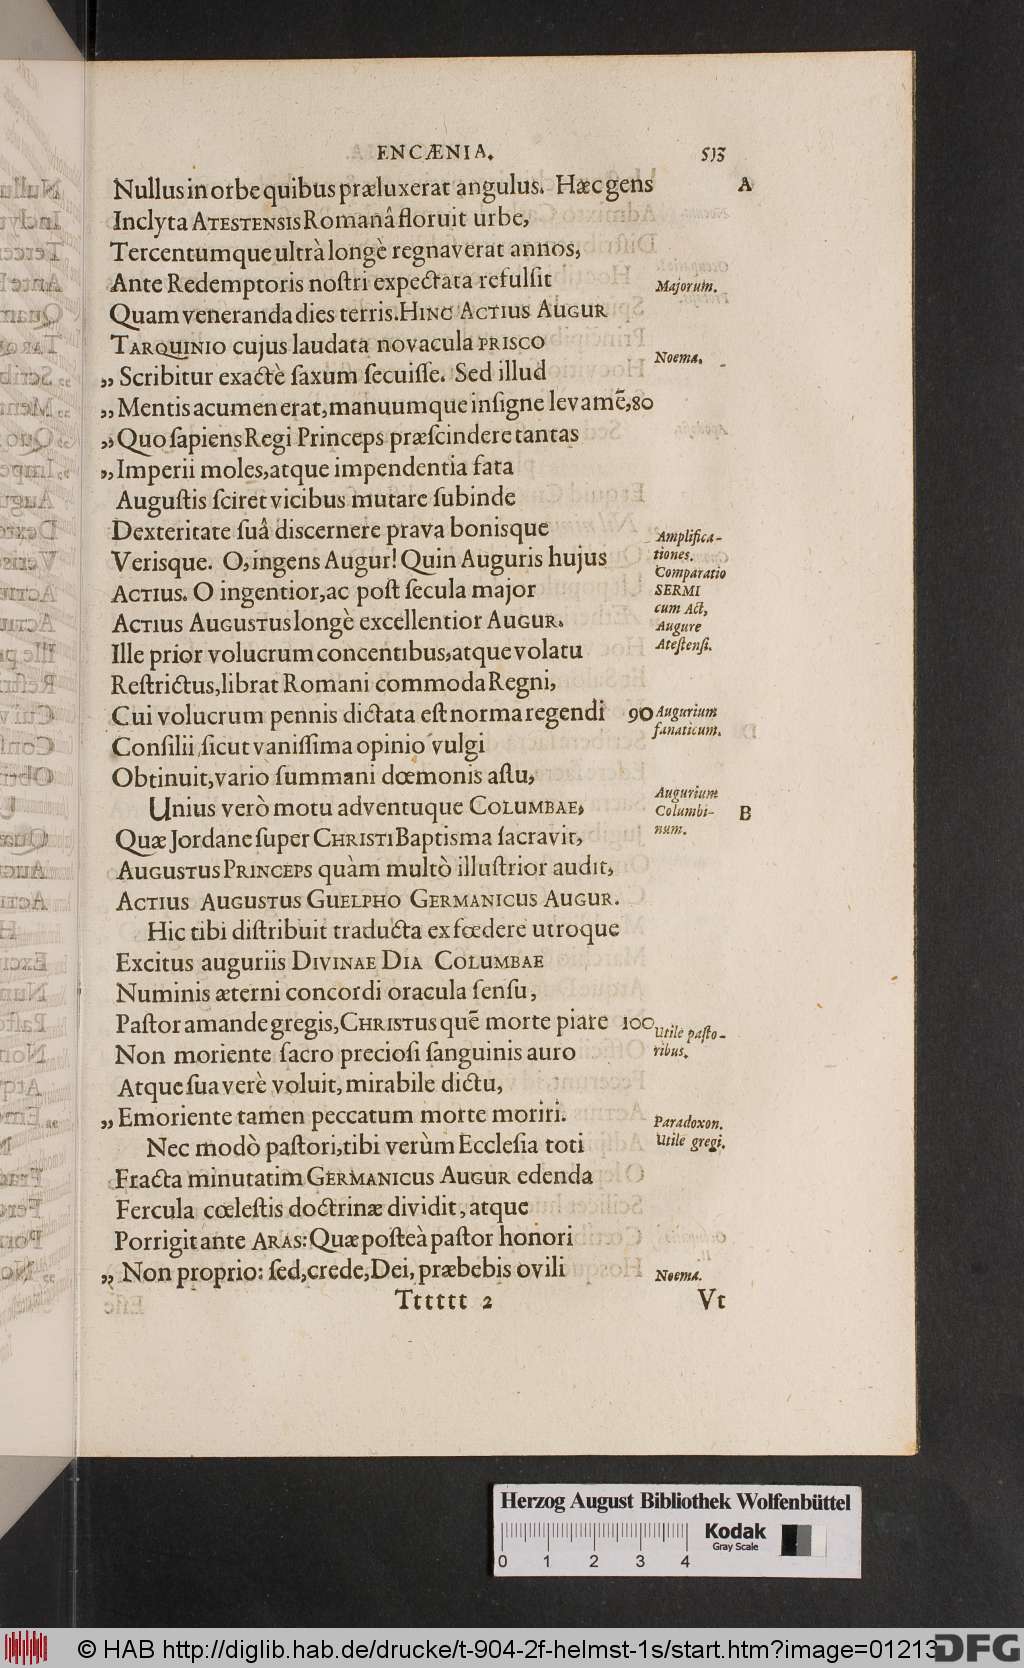 ENCÆNIA. 513
Nullus in orbe quibus præluxerat angulus. Hæc gens A
Inclyta ATESTENSIS Romanâ floruit urbe,
Tercentumque ultrà longè regnaverat annos,
Ante Redemptoris noſtri expectata refulſit Majorum.
Quam veneranda dies terris. HINC ACTIUS AUGUR
TARQUINIO cujus laudata novacula PRISCO Noema.
„ Scribitur exactè ſaxum ſecuiſſe. Sed illud
„ Mentis acumen erat, manuumque inſigne levamē, 80
„ Quo ſapiens Regi Princeps præſcindere tantas
„ Imperii moles, atque impendentia fata
Auguſtis ſciret vicibus mutare ſubinde
Dexteritate ſuâ discernere prava bonisque Amplifica-
Verisque. O, ingens Augur! Quin Auguris hujus tiones.
Comparatio
ACTIUS. O ingentior, ac poſt ſecula major SERMI
cum Act,
ACTIUS AUGUSTUS longè excellentior AUGUR. Augure
Ille prior volucrum concentibus, atque volatu Ateſtenſi.
Reſtrictus, librat Romani commoda Regni,
Cui volucrum pennis dictata eſt norma regendi 90 Augurium
Conſilii, ſicut vaniſſima opinio vulgi fanaticum.
Obtinuit, vario ſummani dœmonis aſtu,
Augurium
Unius verò motu adventuque COLUMBAE, Columbi- B
Quæ Jordane ſuper CHRISTI Baptisma ſacravit, num.
AUGUSTUS PRINCEPS quàm multò illuſtrior audit,
ACTIUS AUGUSTUS GUELPHO GERMANICUS AUGUR.
Hic tibi diſtribuit traducta ex fœdere utroque
Excitus auguriis DIVINAE DIA COLUMBAE
Numinis æterni concordi oracula ſenſu,
Paſtor amande gregis, CHRISTUS quē morte piare 100 Utile paſto-
Non moriente ſacro precioſi ſanguinis auro ribus.
Atque ſua verè voluit, mirabile dictu,
„ Emoriente tamen peccatum morte moriri. Paradoxon.
Nec modò paſtori, tibi verùm Eccleſia toti Utile gregi.
Fracta minutatim GERMANICUS AUGUR edenda
Fercula cœleſtis doctrinæ dividit, atque
Porrigit ante ARAS: Quæ poſteà paſtor honori
„ Non proprio: ſed, crede, Dei, præbebis ovili Noema.
Tttttt 2 Vt
Herzog August Bibliothek Wolfenbüttel
0 1 2 3 4
Kodak
Gray Scale
© HAB http://diglib.hab.de/drucke/t-904-2f-helmst-1s/start.htm?image=01213
DFG